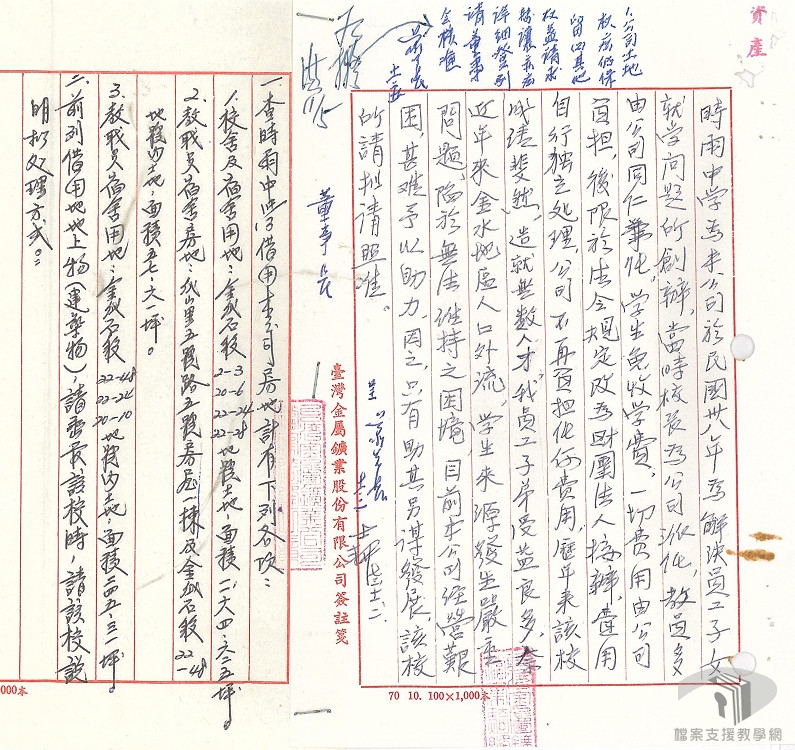 資產
時雨中学為本公司於民國卅八年為解決員工子女
就学问題所創辦，當時校長為公司派任，教員多
由公司同仁兼任，学生免收学費，一切費用由公司
負担，後限於法令規定改為財團法人接辦，費用
自行独立处理，公司不再負担任何費用，歷年来該校
成績斐然，造就無数人才，我員工子弟受益良多，奈
近年来金水地區人口外流，学生来源發生嚴重
問題，陷於無法維持之困境，目前本公司經營艱
困，甚难予以助力，因之，只有助其另謀發展，該校
所請拟请照准。
董事長
臺灣金屬鑛業股份有限公司簽註箋
70 10. 100×1,000本
一、查時雨中学借用本公司房地計有下列各項：
1.校舍及宿舍用地：金瓜石段 2-3 20-6 22-24 22-28 地號土地，面積一、二六四.六二五坪。
2.教職員宿舍房地：瓜山里五號路五號房屋一棟及金瓜石段 22-48
地號內土地，面積五七.六一坪。
3.教職員宿舍用地：金瓜石段 22-48 22-24 20-10 地號內土地，面積二四五.三一坪。
二、前列借用地地上物（建築物）請查最該校時，請該校説
明拟处理方式。
000本
檔案支援教學網